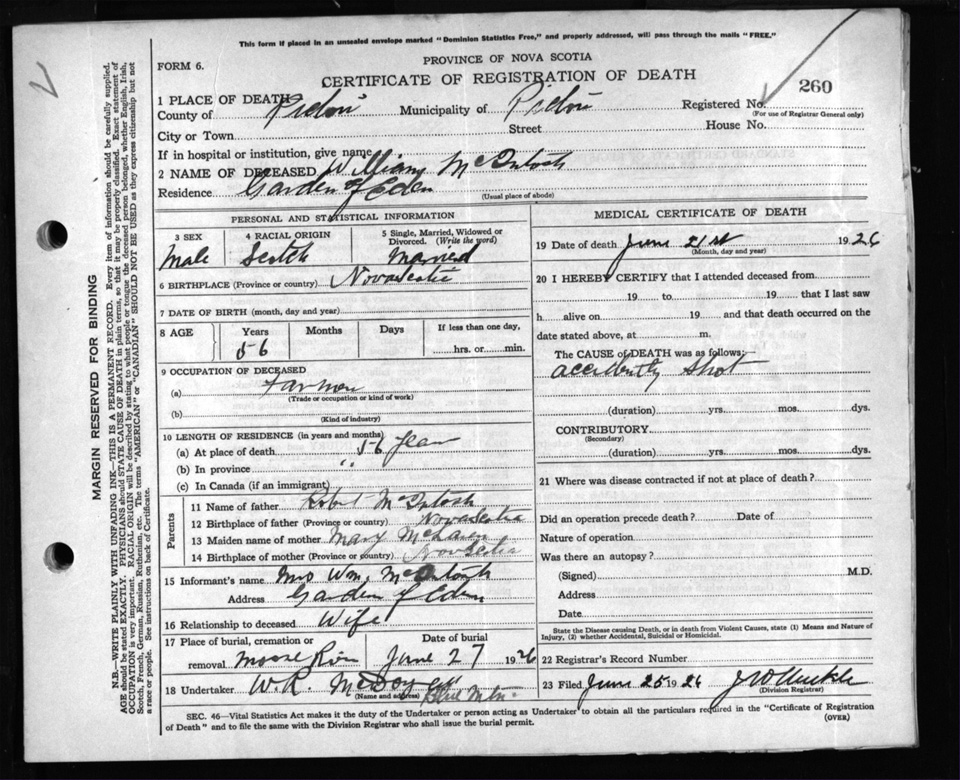 This form if placed in an unsealed envelope marked "Dominion Statistics Free," and properly addressed, will pass through the mails "FREE."
FORM 6.
PROVINCE OF NOVA SCOTIA
CERTIFICATE OF REGISTRATION OF DEATH
260
1 PLACE OF DEATH
County of Pictou Municipality of Pictou Registered No.
(For use of Registrar General only)
City or Town Street House No.
If in hospital or institution, give name
2 NAME OF DECEASED William McIntosh
Residence Garden of Eden
(Usual place of abode)
PERSONAL AND STATISTICAL INFORMATION
3 SEX 4 RACIAL ORIGIN 5 Single, Married, Widowed or Divorced. (Write the word)
Male Scotch Married
6 BIRTHPLACE (Province or country) Nova Scotia
7 DATE OF BIRTH (month, day and year)
8 AGE Years Months Days If less than one day,
56 hrs. or min.
9 OCCUPATION OF DECEASED
(a) Farmer
(Trade or occupation or kind of work)
(b)
(Kind of industry)
10 LENGTH OF RESIDENCE (in years and months)
(a) At place of death 56 Years
(b) In province "
(c) In Canada (if an immigrant)
Parents
11 Name of father Robt McIntosh
12 Birthplace of father (Province or country) Nova Scotia
13 Maiden name of mother Mary
14 Birthplace of mother (Province or country) Nova Scotia
15 Informant's name Mrs Wm. McIntosh
Address Garden of Eden
16 Relationship to deceased Wife
17 Place of burial, cremation or removal Moose River
Date of burial
June 27 1926
18 Undertaker W. R.
(Name and address)
MEDICAL CERTIFICATE OF DEATH
19 Date of death June 21st 1926
(Month, day and year)
20 I HEREBY CERTIFY that I attended deceased from
19 to 19 that I last saw
h alive on 19 and that death occurred on the
date stated above, at m.
The CAUSE of DEATH was as follows:—
accidently shot
(duration) yrs. mos. dys.
CONTRIBUTORY
(Secondary)
(duration) yrs. mos. dys.
21 Where was disease contracted if not at place of death?
Did an operation precede death? Date of
Nature of operation
Was there an autopsy?
(Signed) M.D.
Address
Date
State the Disease causing Death, or in death from Violent Causes, state (1) Means and Nature of
Injury, (2) whether Accidental, Suicidal or Homicidal.
22 Registrar's Record Number
23 Filed June 25 1926
(Division Registrar)
SEC. 46—Vital Statistics Act makes it the duty of the Undertaker or person acting as Undertaker to obtain all the particulars required in the "Certificate of Registration
of Death" and to file the same with the Division Registrar who shall issue the burial permit.
(OVER)
MARGIN RESERVED FOR BINDING
N.B.—WRITE PLAINLY WITH UNFADING INK—THIS IS A PERMANENT RECORD. Every item of information should be carefully supplied.
AGE should be stated EXACTLY. PHYSICIANS should STATE CAUSE OF DEATH in plain terms, so that it may be properly classified. Exact statement of
OCCUPATION is very important. RACIAL ORIGIN will be described by stating to what people or tongue the deceased person belonged, whether English, Irish,
Scotch, French, German, Russian, Ruthenian, etc. The terms "AMERICAN" or "CANADIAN" SHOULD NOT BE USED as they express citizenship but not
a race or people. See instructions on back of Certificate.